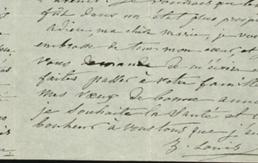 fût dans un état plus prop
adieu, ma chère Marie, je vous
embrasse de tout mon cœur, et
vous demande de m'écrire
faites passer à votre famille
mes vœux de bonne anné
je souhaite la santé et l
bonheur à vous tous que j
Louis